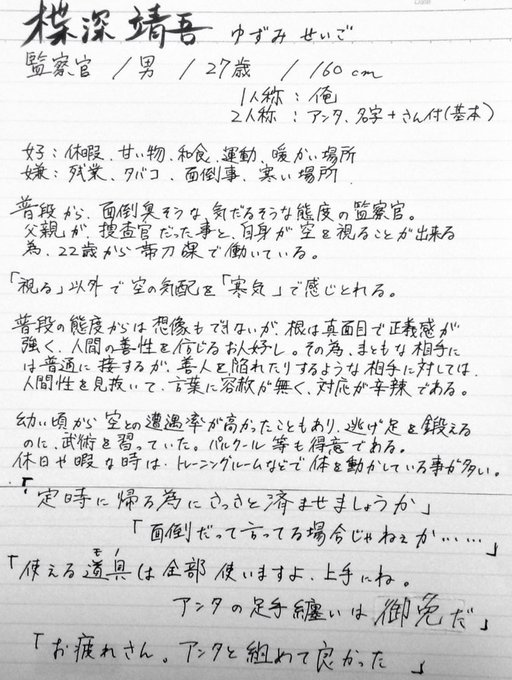 楪深 靖吾 ゆずみ せいご
監察官 / 男 / 27歳 / 160cm
1人称:俺
2人称:アンタ、名字+さん付(基本)
好:休暇、甘い物、和食、運動、暖かい場所
嫌:残業、タバコ、面倒事、寒い場所
普段から、面倒臭そうな、気だるそうな態度の監察官。
父親が、捜査官だった事と、自身が空を視ることが出来る
為、22歳から帯刀課で働いている。
「視る」以外で空の気配を「寒気」で感じとれる。
普段の態度からは想像もできないが、根は真面目で正義感が
強く、人間の善性を信じるお人好し。その為、まともな相手に
は普通に接するが、善人を陥れたりするような相手に対しては、
人間性を見抜いて、言葉に容赦が無く、対応が辛辣である。
幼い頃から空との遭遇率が高かったこともあり、逃げ足を鍛える
のに、武術を習っていた。パルクール等も得意である。
休日や暇な時は、トレーニングルームなどで体を動かしている事が多い。
「定時に帰る為にさっさと済ませましょうか」
「面倒だって言ってる場合じゃねぇか……」
「使える道具(モノ)は全部使いますよ、上手にね。
アンタの足手纏いは御免だ」
「お疲れさん。アンタと組めて良かった」